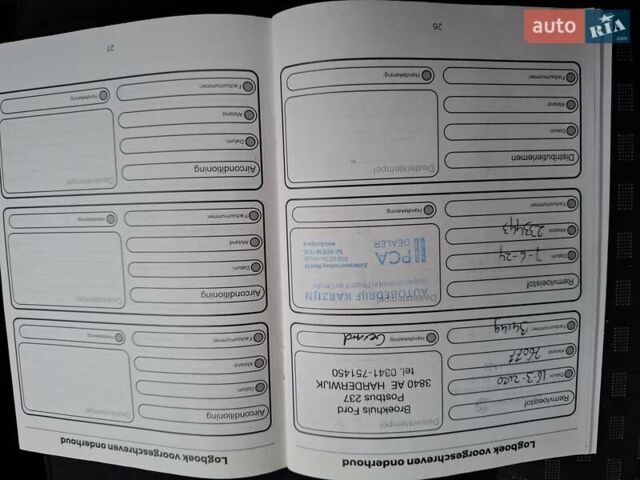 auto RIA.com
Logboek voorgeschreven onderhoud
Remvloeistof
Datum 16-3-2020
Afstand
Factuurnummer
Handtekening Gerard
Dealerstempel
Broekhuis Ford
Postbus 237
3840 AE HARDERWIJK
tel. 0341-751450
Remvloeistof
Datum 7-6-24
Afstand 233443
Factuurnummer
Handtekening
Dealerstempel
AUTOBEDRIJF KARZIJN
PCA
DEALER
Distributieriemen
Datum
Afstand
Factuurnummer
Handtekening
Dealerstempel
26
Logboek voorgeschreven onderhoud
Airconditioning
Datum
Afstand
Factuurnummer
Handtekening
Dealerstempel
Airconditioning
Datum
Afstand
Factuurnummer
Handtekening
Dealerstempel
Airconditioning
Datum
Afstand
Factuurnummer
Handtekening
Dealerstempel
27